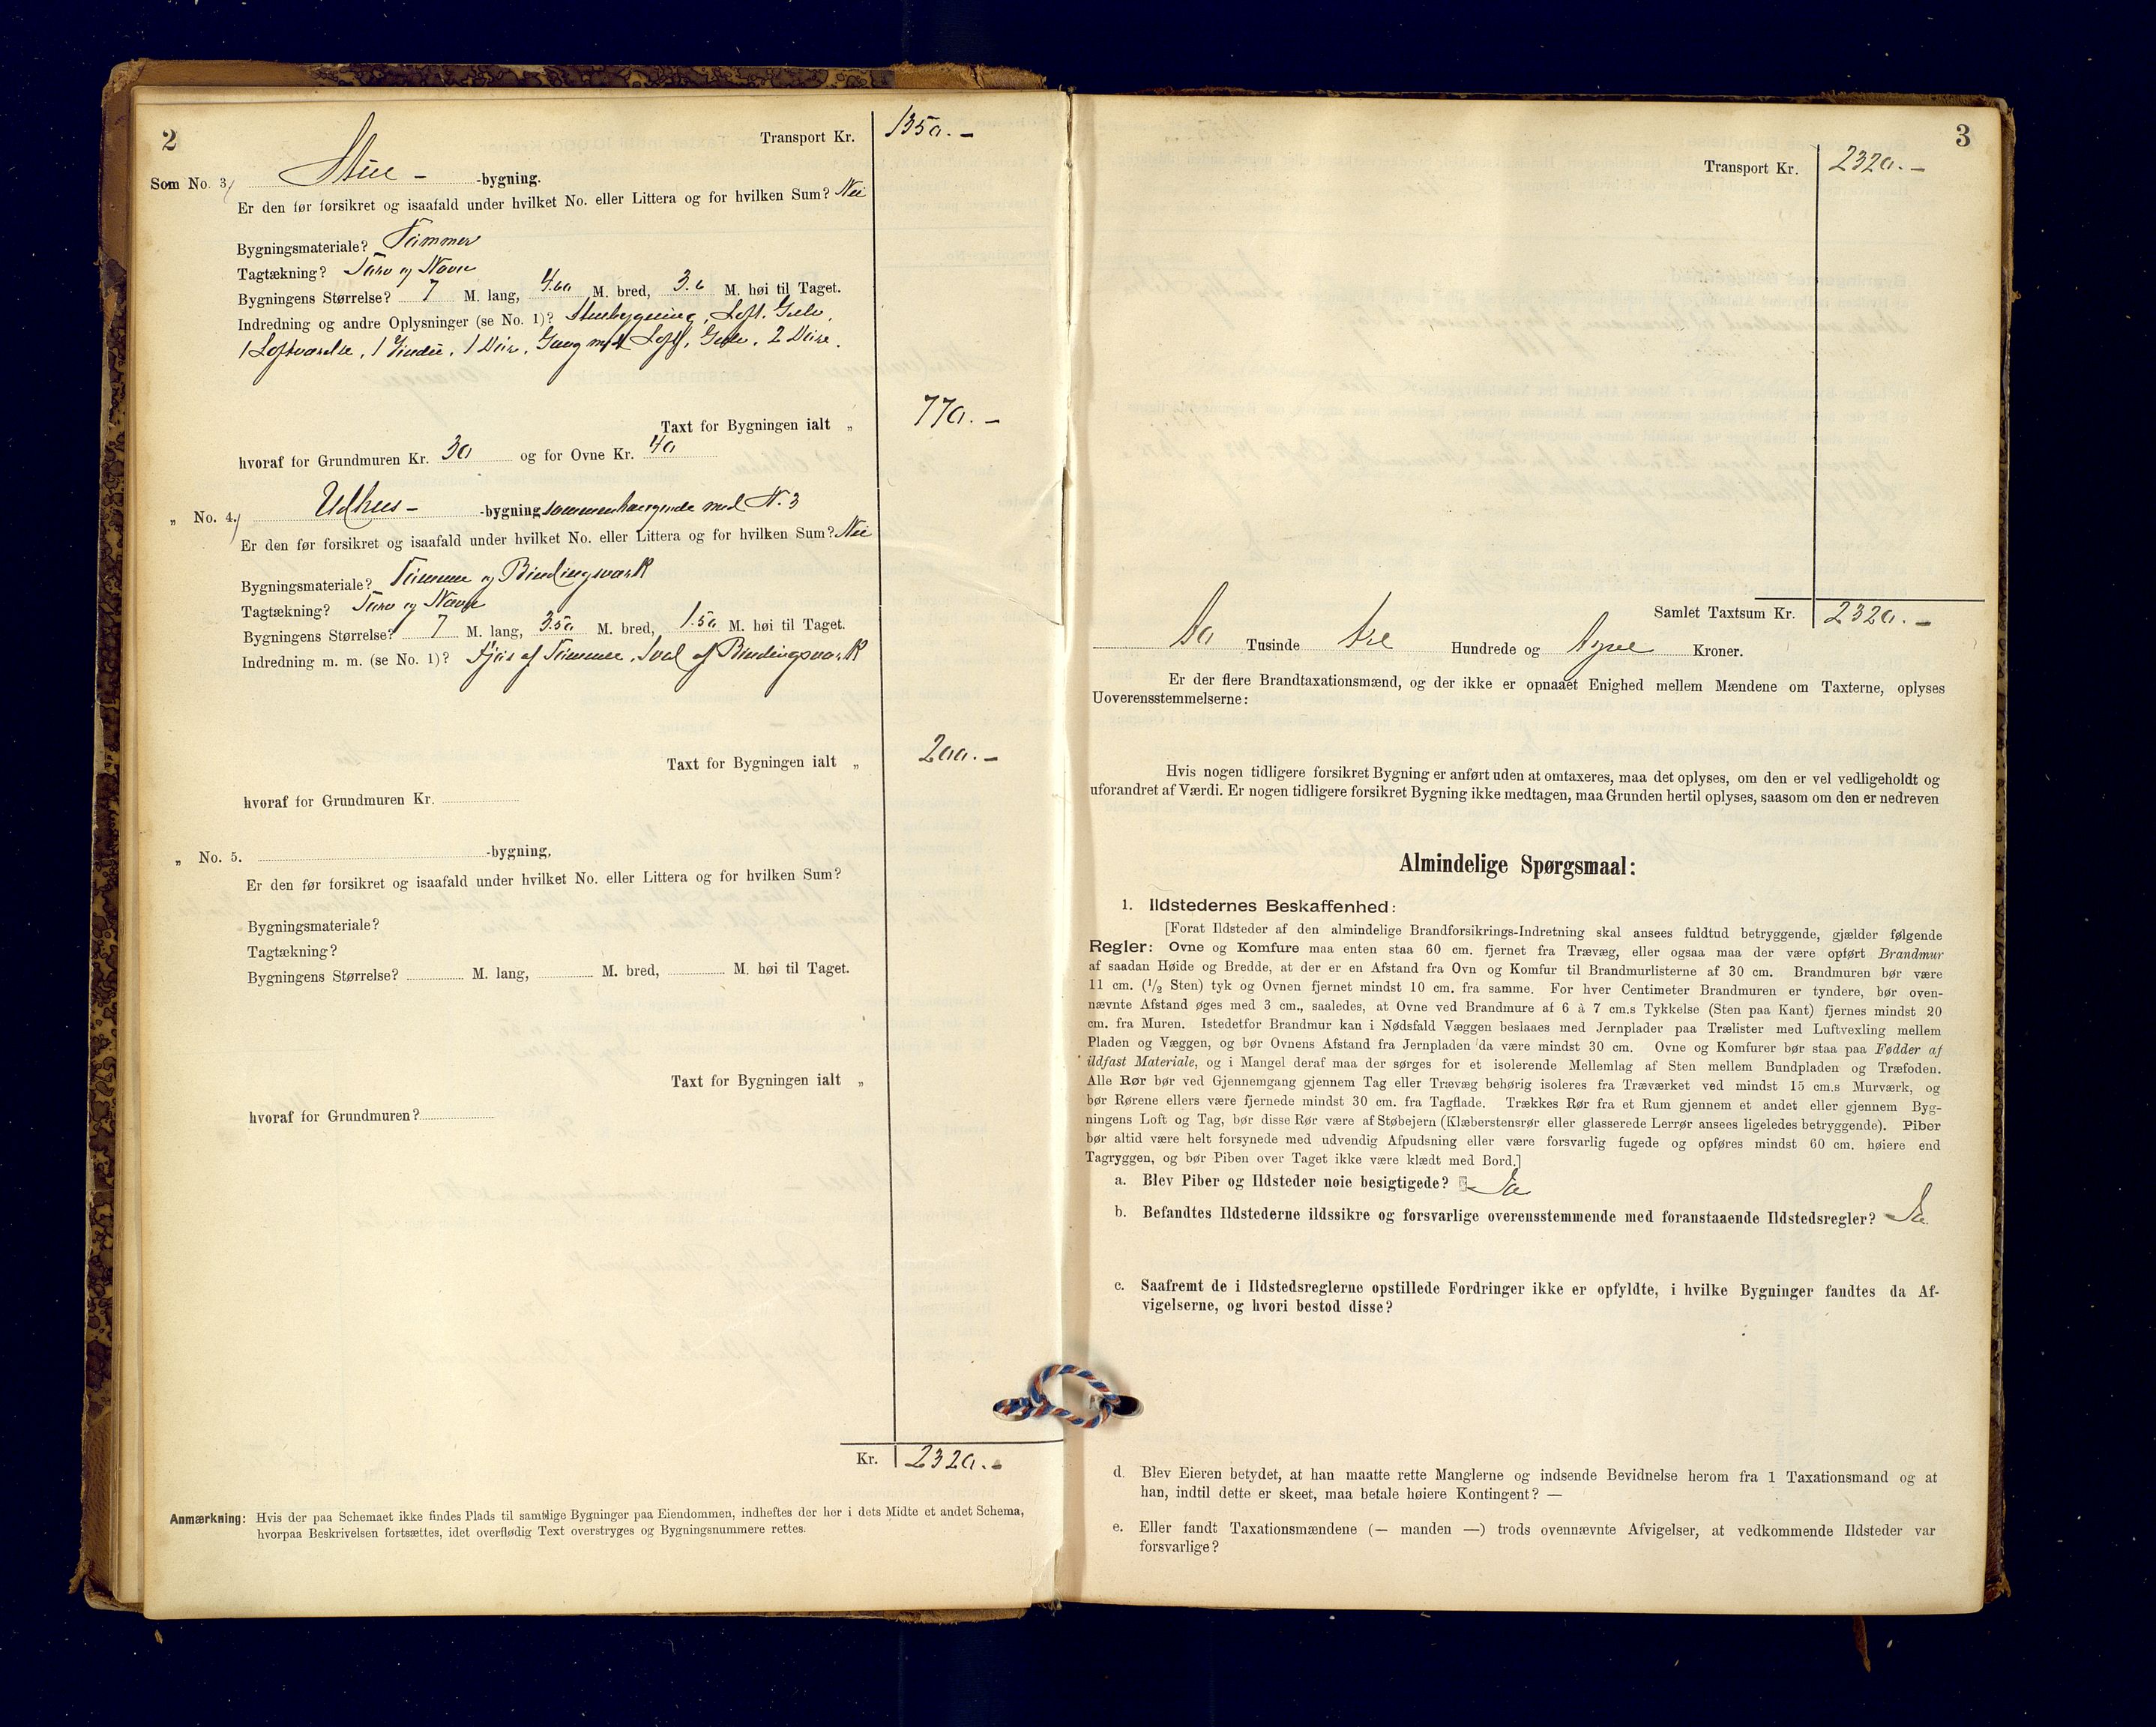 2
Transport Kr. 1350.-
Som No. 3) Stue - -bygning.
Er den før forsikret og isaafald under hvilket No. eller Littera og for hvilken Sum? Nei
Bygningsmateriale? Tømmer
Tagtækning? Torv og Næver
Bygningens Størrelse? 7 M. lang, 4.60 M. bred, 3.0 M. høi til Taget.
Indredning og andre Oplysninger (se No. 1)? Stuebygning, Loft. Gulv,
1 Loftværelse, 1 Vindu, 1 Dør, Gang med Loft, Gulv, 2 Døre.
Taxt for Bygningen ialt „ 770.-
hvoraf for Grundmuren Kr. 30 og for Ovne Kr. 40
„ No. 4.) Udhus - -bygning sammenhængende med N. 3
Er den før forsikret og isaafald under hvilket No. eller Littera og for hvilken Sum? Nei
Bygningsmateriale? Tømmer og Bindingsværk
Tagtækning? Torv og Næver
Bygningens Størrelse? 7 M. lang, 3.50 M. bred, 1.50 M. høi til Taget.
Indredning m. m. (se No. 1)? Fjøs af Tømmer, Sval af Bindingsværk
Taxt for Bygningen ialt „ 200.-
hvoraf for Grundmuren Kr.
„ No. 5. -bygning,
Er den før forsikret og isaafald under hvilket No. eller Littera og for hvilken Sum?
Bygningsmateriale?
Tagtækning?
Bygningens Størrelse? M. lang, M. bred, M. høi til Taget.
Taxt for Bygningen ialt „
hvoraf for Grundmuren?
Kr. 2320.-
Anmærkning: Hvis der paa Schemaet ikke findes Plads til samtlige Bygninger paa Eiendommen, indheftes der her i dets Midte et andet Schema,
hvorpaa Beskrivelsen fortsættes, idet overflødig Text overstryges og Bygningsnummere rettes.
3
Transport Kr. 2320.-
Samlet Taxtsum Kr. 2320.-
To Tusinde tre Hundrede og tyve Kroner.
Er der flere Brandtaxationsmænd, og der ikke er opnaaet Enighed mellem Mændene om Taxterne, oplyses
Uoverensstemmelserne:
Hvis nogen tidligere forsikret Bygning er anført uden at omtaxeres, maa det oplyses, om den er vel vedligeholdt og
uforandret af Værdi. Er nogen tidligere forsikret Bygning ikke medtagen, maa Grunden hertil oplyses, saasom om den er nedreven
Almindelige Spørgsmaal:
1. Ildstedernes Beskaffenhed:
[Forat Ildsteder af den almindelige Brandforsikrings-Indretning skal ansees fuldtud betryggende, gjælder følgende
Regler: Ovne og Komfure maa enten staa 60 cm. fjernet fra Trævæg, eller ogsaa maa der være opført Brandmur
af saadan Høide og Bredde, at der er en Afstand fra Ovn og Komfur til Brandmurlisterne af 30 cm. Brandmuren bør være
11 cm. (1/2 Sten) tyk og Ovnen fjernet mindst 10 cm. fra samme. For hver Centimeter Brandmuren er tyndere, bør oven-
nævnte Afstand øges med 3 cm., saaledes, at Ovne ved Brandmure af 6 à 7 cm.s Tykkelse (Sten paa Kant) fjernes mindst 20
cm. fra Muren. Istedetfor Brandmur kan i Nødsfald Væggen beslaaes med Jernplader paa Trælister med Luftvexling mellem
Pladen og Væggen, og bør Ovnens Afstand fra Jernpladen da være mindst 30 cm. Ovne og Komfurer bør staa paa Fødder af
ildfast Materiale, og i Mangel deraf maa der sørges for et isolerende Mellemlag af Sten mellem Bundpladen og Træfoden.
Alle Rør bør ved Gjennemgang gjennem Tag eller Trævæg behørig isoleres fra Træværket ved mindst 15 cm.s Murværk, og
bør Rørene ellers være fjernede mindst 30 cm. fra Tagflade. Trækkes Rør fra et Rum gjennem et andet eller gjennem Byg-
ningens Loft og Tag, bør disse Rør være af Støbejern (Klæberstensrør eller glasserede Lerrør ansees ligeledes betryggende). Piber
bør altid være helt forsynede med udvendig Afpudsning eller være forsvarlig fugede og opføres mindst 60 cm. høiere end
Tagryggen, og bør Piben over Taget ikke være klædt med Bord.]
a. Blev Piber og Ildsteder nøie besigtigede? Ja
b. Befandtes Ildstederne ildssikre og forsvarlige overensstemmende med foranstaaende Ildstedsregler? Ja
c. Saafremt de i Ildstedsreglerne opstillede Fordringer ikke er opfyldte, i hvilke Bygninger fandtes da Af-
vigelserne, og hvori bestod disse?
d. Blev Eieren betydet, at han maatte rette Manglerne og indsende Bevidnelse herom fra 1 Taxationsmand og at
han, indtil dette er skeet, maa betale høiere Kontingent? —
e. Eller fandt Taxationsmændene (— manden —) trods ovennævnte Afvigelser, at vedkommende Ildsteder var
forsvarlige?